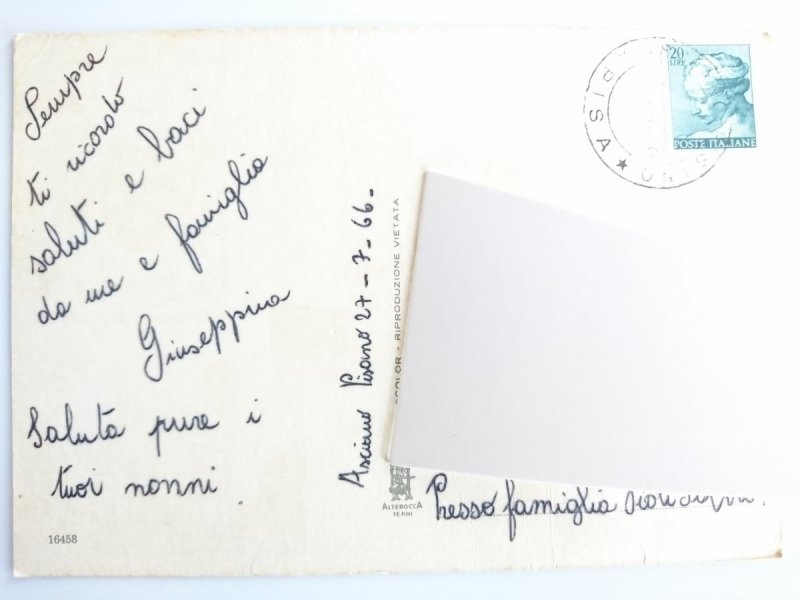 Sempre
ti ricordo
saluti e baci
da me e famiglia
Giuseppina
Saluta pure i
tuoi nonni
16458
Asciano Pisano 27-7-66-
COLOR · RIPRODUZIONE VIETATA
ALTEROCCA
TERNI
PISA
20
LIRE
POSTE ITALIANE
Presso famiglia